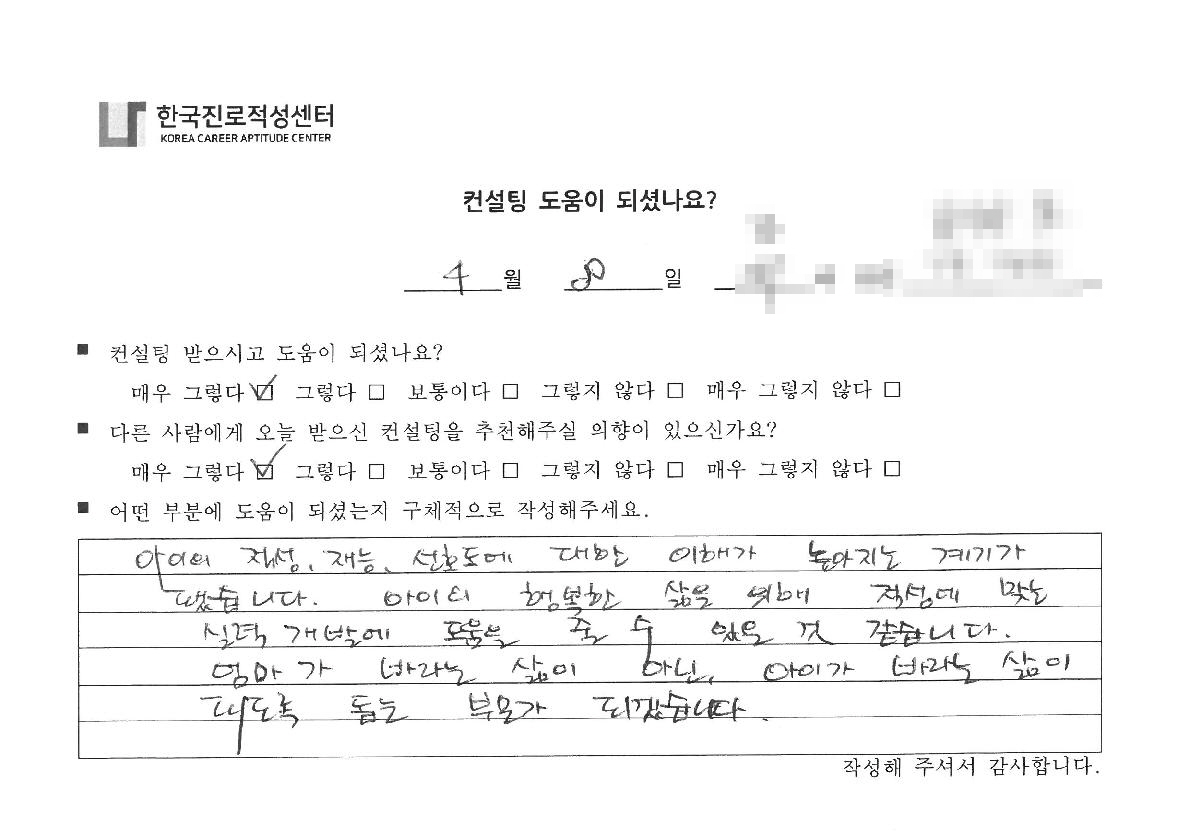 한국진로적성센터
KOREA CAREER APTITUDE CENTER
컨설팅 도움이 되셨나요?
4 월 8 일
■ 컨설팅 받으시고 도움이 되셨나요?
매우 그렇다 ☑ 그렇다 □ 보통이다 □ 그렇지 않다 □ 매우 그렇지 않다 □
■ 다른 사람에게 오늘 받으신 컨설팅을 추천해주실 의향이 있으신가요?
매우 그렇다 ☑ 그렇다 □ 보통이다 □ 그렇지 않다 □ 매우 그렇지 않다 □
■ 어떤 부분에 도움이 되셨는지 구체적으로 작성해주세요.
아이의 적성, 재능, 선호도에 대한 이해가 높아지는 계기가
됐습니다. 아이의 행복한 삶을 위해 적성에 맞는
실력 개발에 도움을 줄 수 있을 것 같습니다.
엄마가 바라는 삶이 아닌, 아이가 바라는 삶이
되도록 돕는 부모가 되겠습니다.
작성해 주셔서 감사합니다.